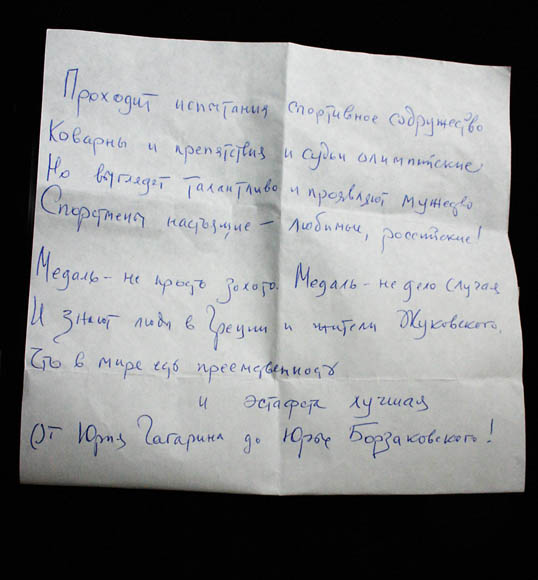 Проходит испытания спортивное содружество
Коварны и препятствия и судьи олимпийские
Но выглядят талантливо и проявляют мужество
Спортсмены настоящие – любимые, российские!
Медаль – не просто золото. Медаль – не дело случая
И знают люди в Греции и жители Жуковского,
Что в мире есть преемственность
и эстафета лучшая
От Юрия Гагарина до Юрия Борзаковского!